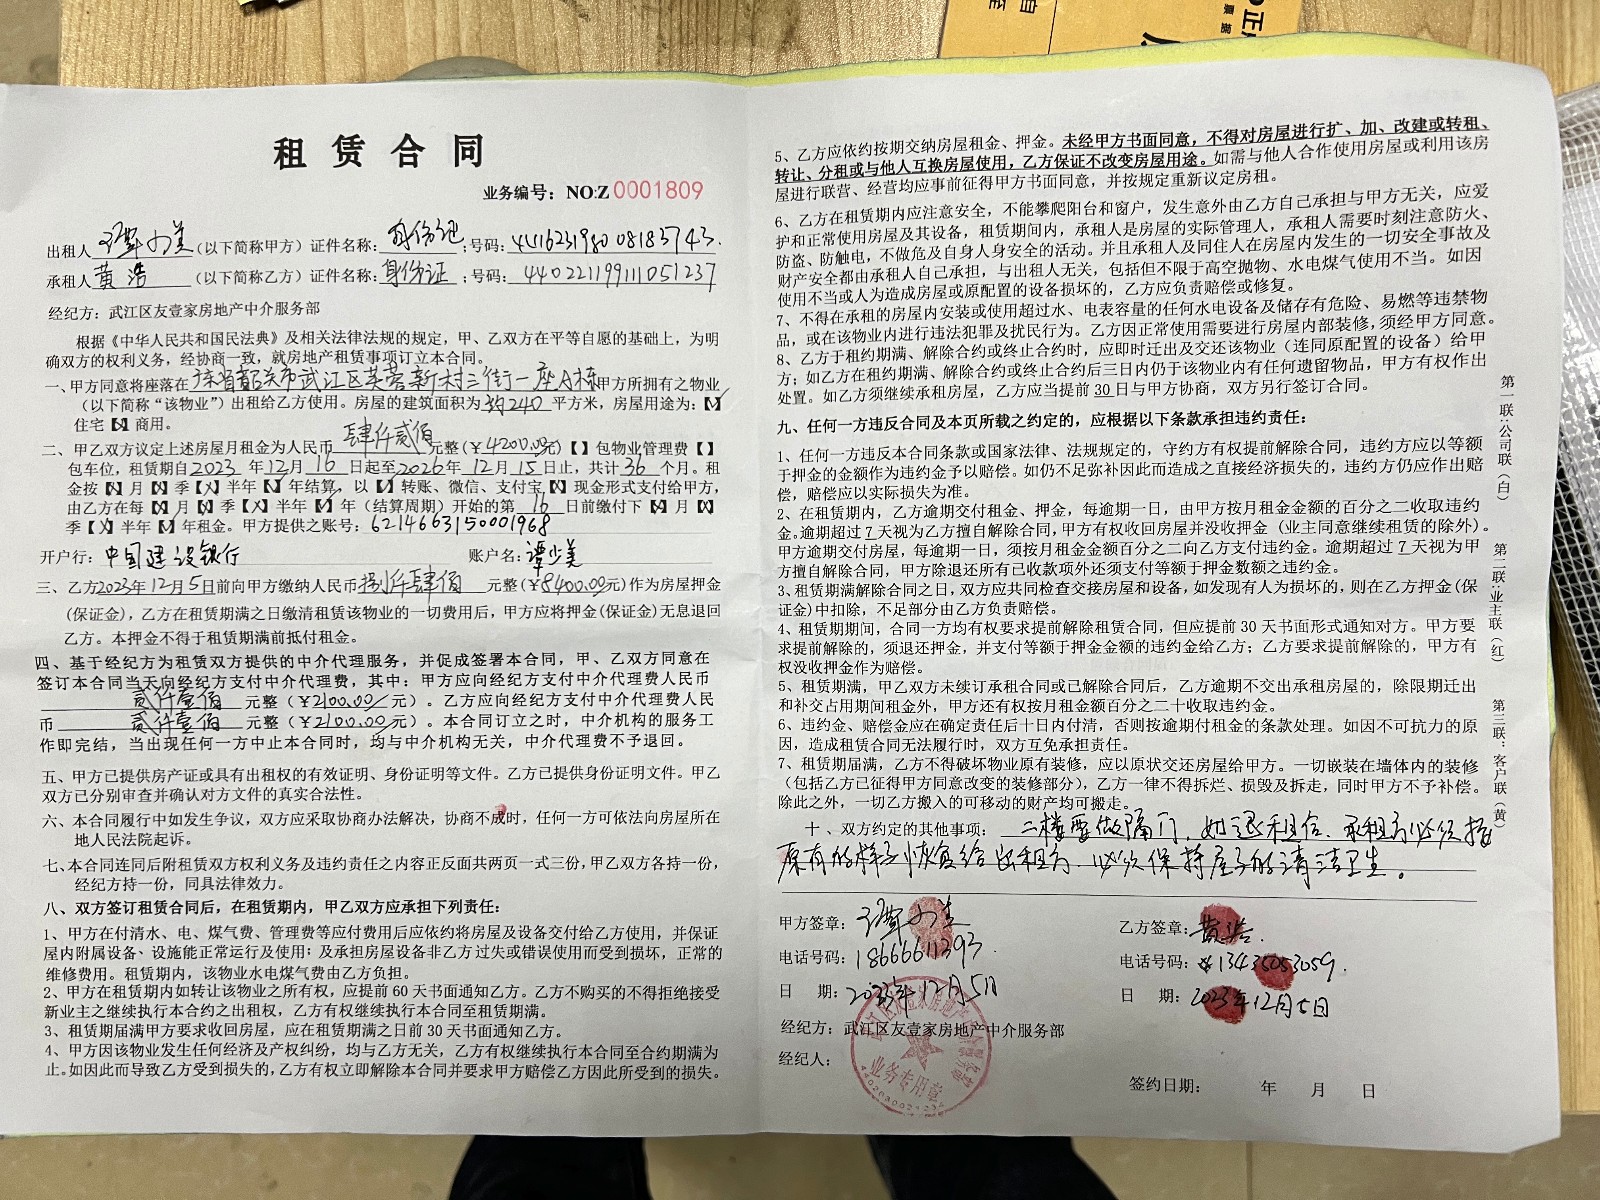 租赁合同
业务编号：NO:Z 0001809
出租人 谭少美 （以下简称甲方）证件名称：身份证；号码：
承租人 黄浩 （以下简称乙方）证件名称：身份证；号码：440221199111051237
经纪方：武江区友壹家房地产中介服务部
根据《中华人民共和国民法典》及相关法律法规的规定，甲、乙双方在平等自愿的基础上，为明
确双方的权利义务，经协商一致，就房地产租赁事项订立本合同。
一、甲方同意将座落在 广东省韶关市武江区芙蓉新村三街一座A栋 甲方所拥有之物业
（以下简称“该物业”）出租给乙方使用。房屋的建筑面积为 约240 平方米，房屋用途为：【】
住宅【】商用。
二、甲乙双方议定上述房屋月租金为人民币 肆仟贰佰 元整（￥4200.00元）【】包物业管理费【】
包车位，租赁期自2023年12月16日起至2026年12月15日止，共计36个月。租
金按【】月【】季【】半年【】年结算，以【】转账、微信、支付宝【】现金形式支付给甲方，
由乙方在每【】月【】季【】半年【】年（结算周期）开始的第 16 日前缴付下【】月【】
季【】半年【】年租金。甲方提供之账号：6214663150001968
开户行：中国建设银行 账户名：谭少美
三、乙方2023年12月5日前向甲方缴纳人民币 捌仟肆佰 元整（￥8400.00元）作为房屋押金
（保证金），乙方在租赁期满之日缴清租赁该物业的一切费用后，甲方应将押金（保证金）无息退回
乙方。本押金不得于租赁期满前抵付租金。
四、基于经纪方为租赁双方提供的中介代理服务，并促成签署本合同，甲、乙双方同意在
签订本合同当天向经纪方支付中介代理费，其中：甲方应向经纪方支付中介代理费人民币
贰仟壹佰 元整（￥2100.00元）。乙方应向经纪方支付中介代理费人民
币 贰仟壹佰 元整（￥2100.00元）。本合同订立之时，中介机构的服务工
作即完结，当出现任何一方中止本合同时，均与中介机构无关，中介代理费不予退回。
五、甲方已提供房产证或具有出租权的有效证明、身份证明等文件。乙方已提供身份证明文件。甲乙
双方已分别审查并确认对方文件的真实合法性。
六、本合同履行中如发生争议，双方应采取协商办法解决，协商不成时，任何一方可依法向房屋所在
地人民法院起诉。
七、本合同连同后附租赁双方权利义务及违约责任之内容正反面共两页一式三份，甲乙双方各持一份，
经纪方持一份，同具法律效力。
八、双方签订租赁合同后，在租赁期内，甲乙双方应承担下列责任：
1、甲方在付清水、电、煤气费、管理费等应付费用后应依约将房屋及设备交付给乙方使用，并保证
屋内附属设备、设施能正常运行及使用；及承担房屋设备非乙方过失或错误使用而受到损坏，正常的
维修费用。租赁期内，该物业水电煤气费由乙方负担。
2、甲方在租赁期内如转让该物业之所有权，应提前60天书面通知乙方。乙方不购买的不得拒绝接受
新业主之继续执行本合约之出租权，乙方有权继续执行本合同至租赁期满。
3、租赁期届满甲方要求收回房屋，应在租赁期满之日前30天书面通知乙方。
4、甲方因该物业发生任何经济及产权纠纷，均与乙方无关，乙方有权继续执行本合同至合约期满为
止。如因此而导致乙方受到损失的，乙方有权立即解除本合同并要求甲方赔偿乙方因此所受到的损失。
5、乙方应依约按期交纳房屋租金、押金。未经甲方书面同意，不得对房屋进行扩、加、改建或转租、
转让、分租或与他人互换房屋使用，乙方保证不改变房屋用途。如需与他人合作使用房屋或利用该房
屋进行联营、经营均应事前征得甲方书面同意，并按规定重新议定房租。
6、乙方在租赁期内应注意安全，不能攀爬阳台和窗户，发生意外由乙方自己承担与甲方无关，应爱
护和正常使用房屋及其设备，租赁期间内，承租人是房屋的实际管理人，承租人需要时刻注意防火、
防盗、防触电，不做危及自身人身安全的活动。并且承租人及同住人在房屋内发生的一切安全事故及
财产安全都由承租人自己承担，与出租人无关，包括但不限于高空抛物、水电煤气使用不当。如因
使用不当或人为造成房屋或原配置的设备损坏的，乙方应负责赔偿或修复。
7、不得在承租的房屋内安装或使用超过水、电表容量的任何水电设备及储存有危险、易燃等违禁物
品，或在该物业内进行违法犯罪及扰民行为。乙方因正常使用需要进行房屋内部装修，须经甲方同意。
8、乙方于租约期满、解除合约或终止合约时，应即时迁出及交还该物业（连同原配置的设备）给甲
方；如乙方在租约期满、解除合约或终止合约后三日内仍于该物业内有任何遗留物品，甲方有权作出
处置。如乙方须继续承租房屋，乙方应当提前30日与甲方协商，双方另行签订合同。
九、任何一方违反合同及本页所载之约定的，应根据以下条款承担违约责任：
1、任何一方违反本合同条款或国家法律、法规规定的，守约方有权提前解除合同，违约方应以等额
于押金的金额作为违约金予以赔偿。如仍不足弥补因此而造成之直接经济损失的，违约方仍应作出赔
偿，赔偿应以实际损失为准。
2、在租赁期内，乙方逾期交付租金、押金，每逾期一日，由甲方按月租金金额的百分之二收取违约
金。逾期超过7天视为乙方擅自解除合同，甲方有权收回房屋并没收押金（业主同意继续租赁的除外）。
甲方逾期交付房屋，每逾期一日，须按月租金金额百分之二向乙方支付违约金。逾期超过7天视为甲
方擅自解除合同，甲方除退还所有已收款项外还须支付等额于押金数额之违约金。
3、租赁期满解除合同之日，双方应共同检查交接房屋和设备，如发现有人为损坏的，则在乙方押金（保
证金）中扣除，不足部分由乙方负责赔偿。
4、租赁期期间，合同一方均有权要求提前解除租赁合同，但应提前30天书面形式通知对方。甲方要
求提前解除的，须退还押金，并支付等额于押金金额的违约金给乙方；乙方要求提前解除的，甲方有
权没收押金作为赔偿。
5、租赁期满，甲乙双方未续订承租合同或已解除合同后，乙方逾期不交出承租房屋的，除限期迁出
和补交占用期间租金外，甲方还有权按月租金额百分之二十收取违约金。
6、违约金、赔偿金应在确定责任后十日内付清，否则按逾期付租金的条款处理。如因不可抗力的原
因，造成租赁合同无法履行时，双方互免承担责任。
7、租赁届满，乙方不得破坏物业原有装修，应以原状交还房屋给甲方。一切嵌装在墙体内的装修
（包括乙方已征得甲方同意改变的装修部分），乙方一律不得拆烂、损毁及拆走，同时甲方不予补偿。
除此之外，一切乙方搬入的可移动的财产均可搬走。
十、双方约定的其他事项：二楼要做隔门，如退租后，承租方必须按
原有的样子恢复给出租方，必须保持屋子的清洁卫生。
甲方签章：谭少美 乙方签章：黄浩
电话号码：18666611393 电话号码：13435053059
日 期：2023年12月5日 日 期：2023年12月5日
经纪方：武江区友壹家房地产中介服务部
经纪人：
签约日期： 年 月 日
业务专用章
第一联：公司联（白）
第二联：业主联（红）
第三联：客户联（黄）